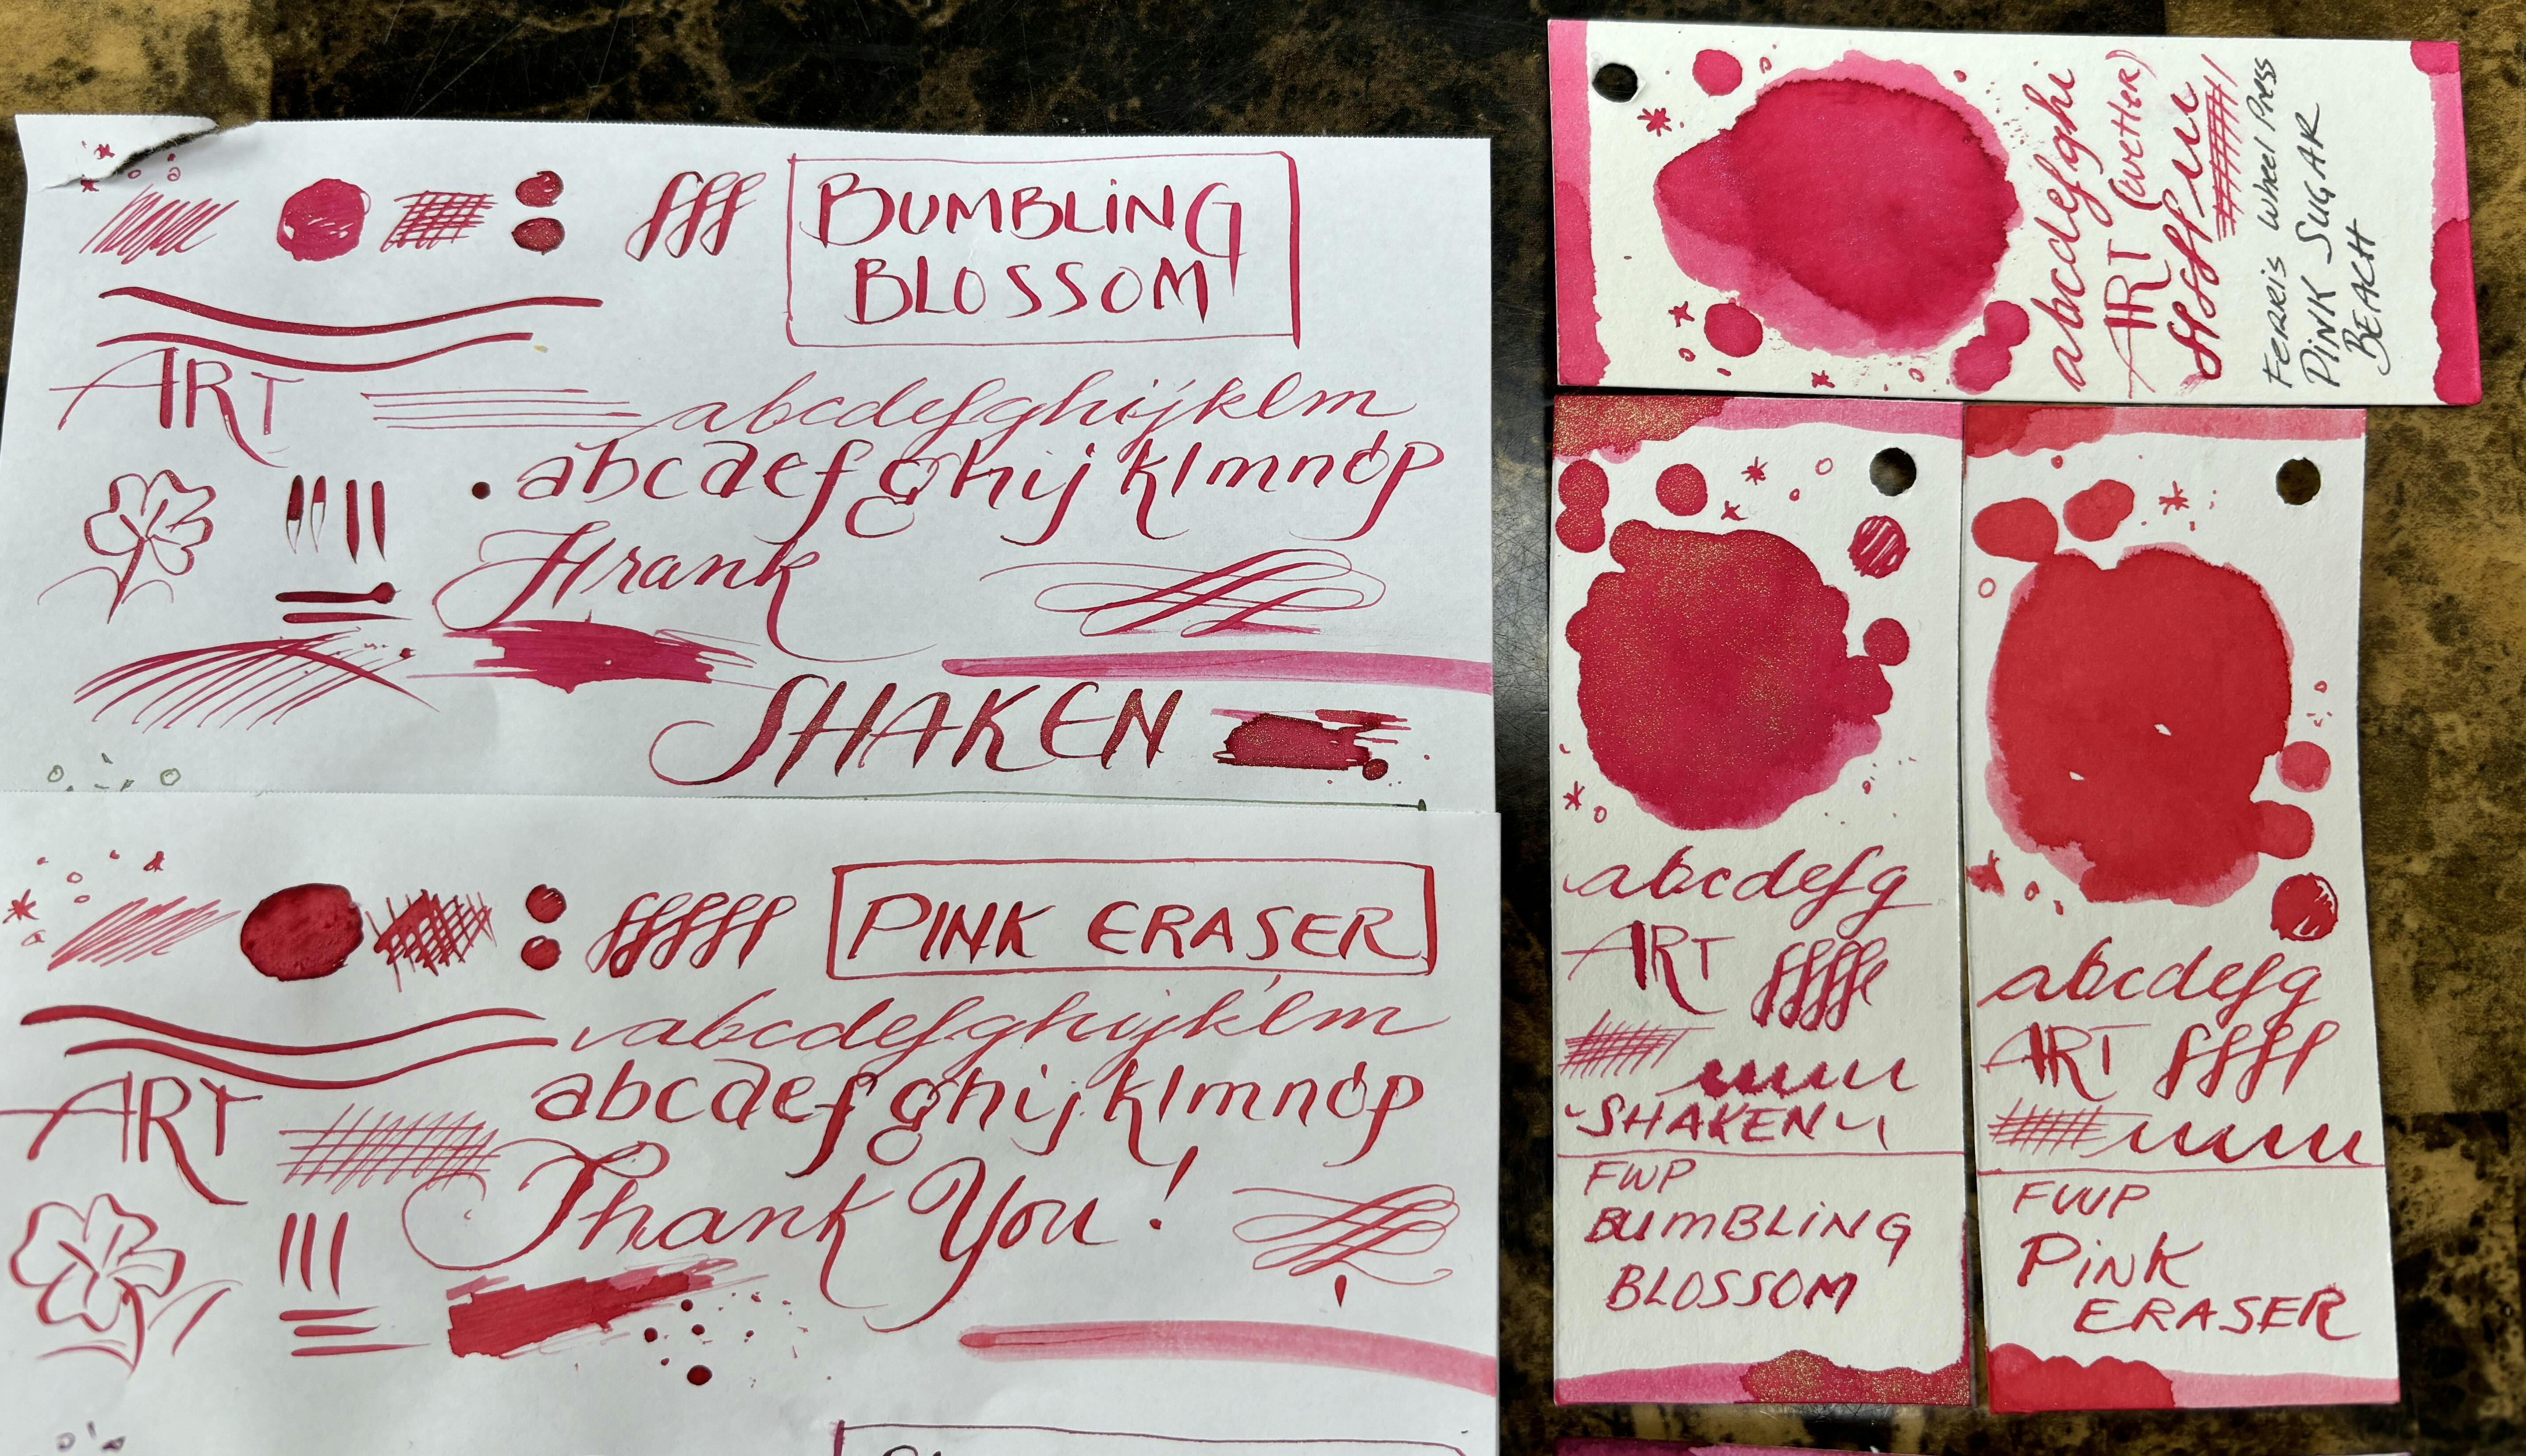 fff
BUMBLiNG
BLOSSOM
ART
abcdefghijklm
abcdefghijklmnop
SHAKEN
fffff PINK ERASER
abcdefghijklm
ART
abcdefghijklmnop
Thank You!
abcdefghi
ART (wetter)
FERRIS Wheel Press
PINK SUGAR
BEACH
abcdefg
ART ffff
SHAKEN
FWP
BUMBLiNG
BLOSSOM
abcdefg
ART ffff
FWP
PiNK
ERASER